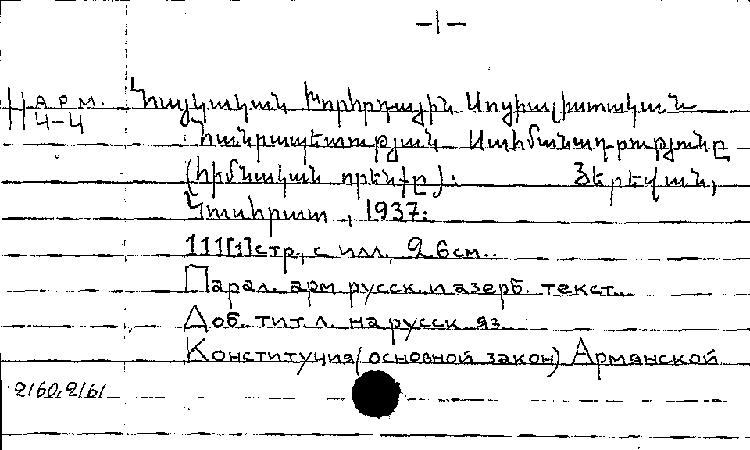 -1-
АРМ.
4-4
Հայկական Խորհրդային Սոցիալիստական
Հանրապետության Սահմանադրությունը
(հիմնական որենքը): Յերեվան,
Կուսհրատ, 1937:
111[1]стр, с илл. 26см.
Парал. арм русск. и азерб. текст.
Доб. тит. л. на русск яз
Конституция (основной закон) Армянской
2160,2161